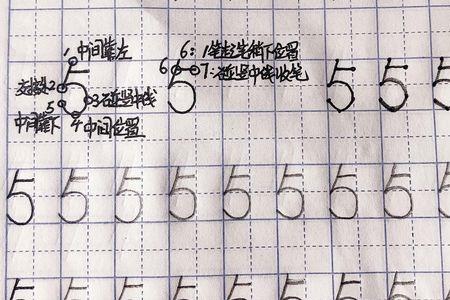 1 中间靠左
6：1笔起笔稍下位置
6 7：近竖中线收笔
交接2 5 3近竖中线 5 5 5 5
5
中间靠下 4 中间位置
5 5 5 5 5 5 5 5 5
5 5 5 5 5 5 5 5 5